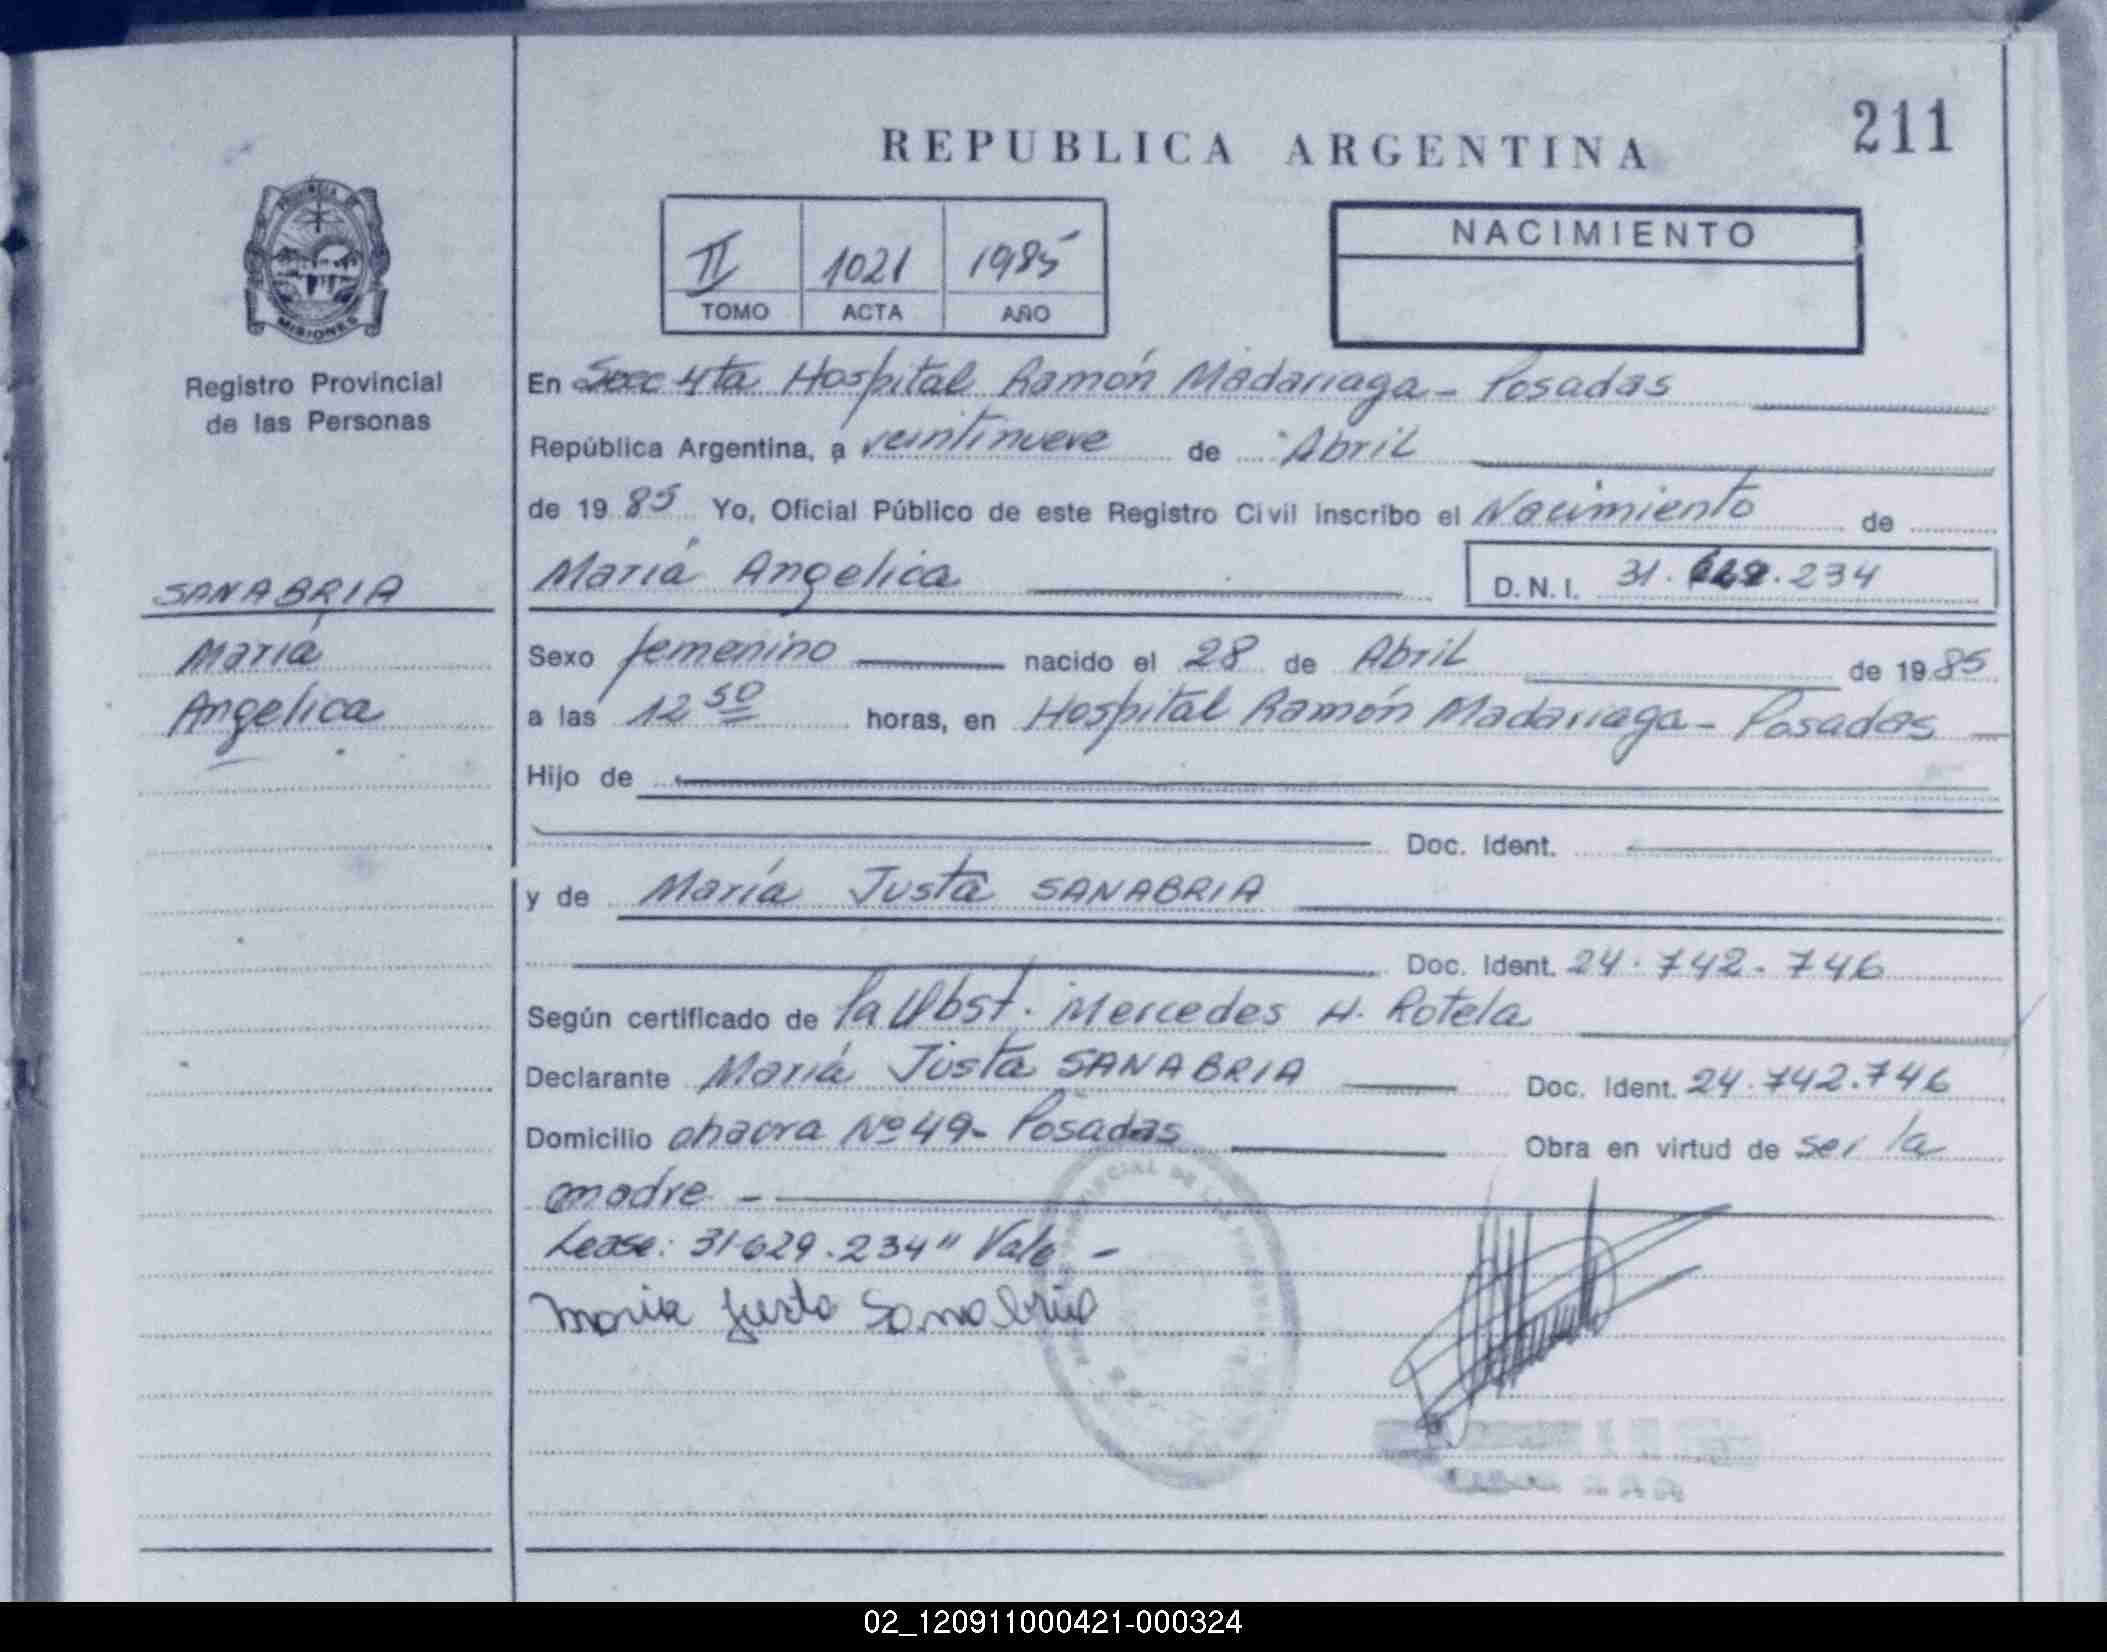 REPUBLICA ARGENTINA
211
II 1021 1985
TOMO ACTA AÑO
NACIMIENTO
MISIONES
Registro Provincial
de las Personas
SANABRIA
María
Angelica
En Secc 4ta Hospital Ramón Madariaga - Posadas
República Argentina, a veintinueve de Abril
de 1985 Yo, Oficial Público de este Registro Civil inscribo el Nacimiento de
María Angelica D.N.I. 31. 629.234
Sexo femenino nacido el 28 de Abril de 1985
a las 12 50 horas, en Hospital Ramón Madariaga - Posadas
Hijo de
Doc. Ident.
y de María Justa SANABRIA
Doc. Ident. 24.742.746
Según certificado de la Obst. Mercedes H. Rotela
Declarante María Justa SANABRIA Doc. Ident. 24.742.746
Domicilio chacra Nº 49- Posadas Obra en virtud de ser la
madre -
Lease: 31.629.234" Vale -
Maria Justa Sanabria
02_120911000421-000324